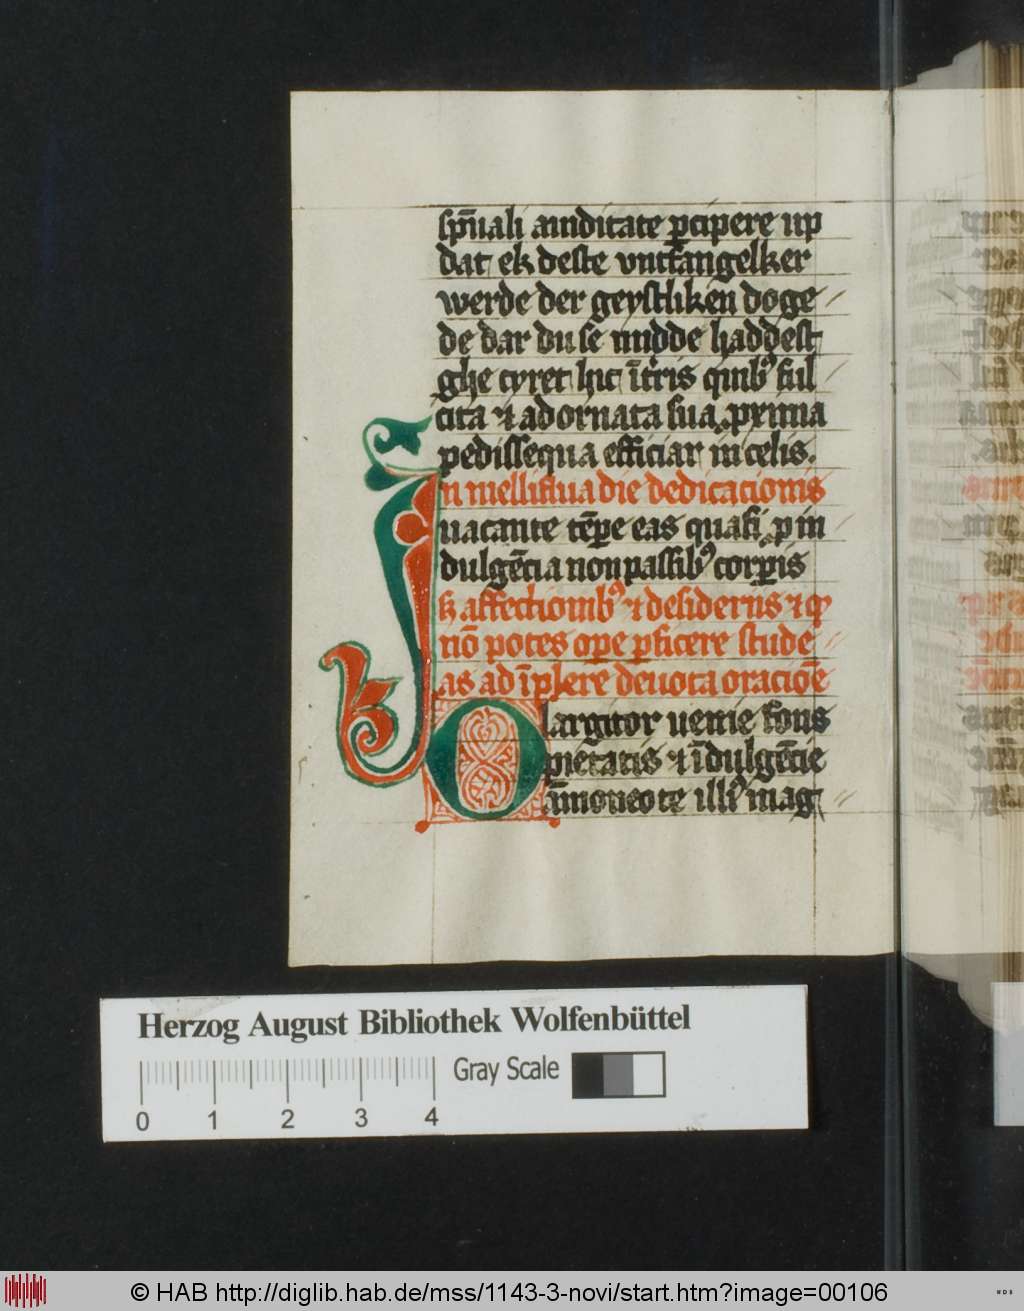 sp̄uali auiditate ꝑcipere up
dat ek deste vntfangelker
werde der geystliken doge
de dar du se midde haddest
ghe cyret hic ī tr̄is quibꝰ ful
cita ⁊ adornata sua ꝓxima
pedissequa efficiar in celis.
In melliflua die dedicacionis
uacante tēꝑe eas quasi ꝓ in
dulgēcia non passibꝰ corꝑis
ꝫ affectionibꝰ ⁊ desideriis ⁊ qͥ
nō potes oꝑe ꝑficere stude
as ad īplere deuota oracioē
O largitor uenie fons
pietatis ⁊ īdulgēcie
am̄oneo te illiꝰ mag
Herzog August Bibliothek Wolfenbüttel
0 1 2 3 4 Gray Scale
© HAB http://diglib.hab.de/mss/1143-3-novi/start.htm?image=00106